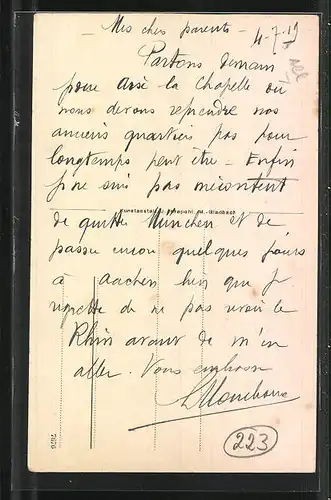 - Mes chers parents - 4-7-19
Partons demain
pour Aix-la Chapelle où
nous devons reprendre nos
anciens quartiers pas pour
longtemps peut être - Enfin
je ne suis pas mécontent
M.-Gladbach
de quitter München et de
passer encore quelques jours
à Aachen bien que je
regrette de ne pas revoir le
Rhin avant de m'en
aller. Vous embrasse
223